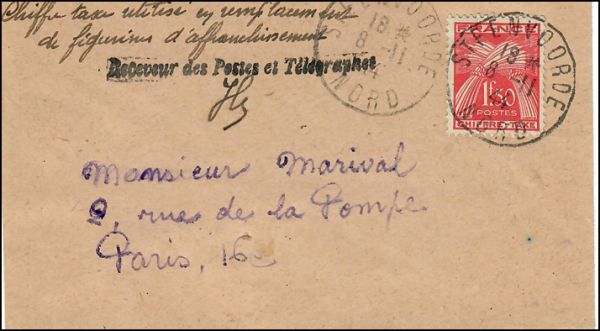 Chiffre taxe utilisé en remplacement
de figurines d'affranchissement
Receveur des Postes et Télégraphes
STEENVOORDE
18 *
8 - 11
44
NORD
FRANCE
1F50
POSTES
CHIFFRE-TAXE
STEENVOORDE
18 *
8 - 11
NORD
Monsieur Marival
2, rue de la Pompe
Paris, 16e